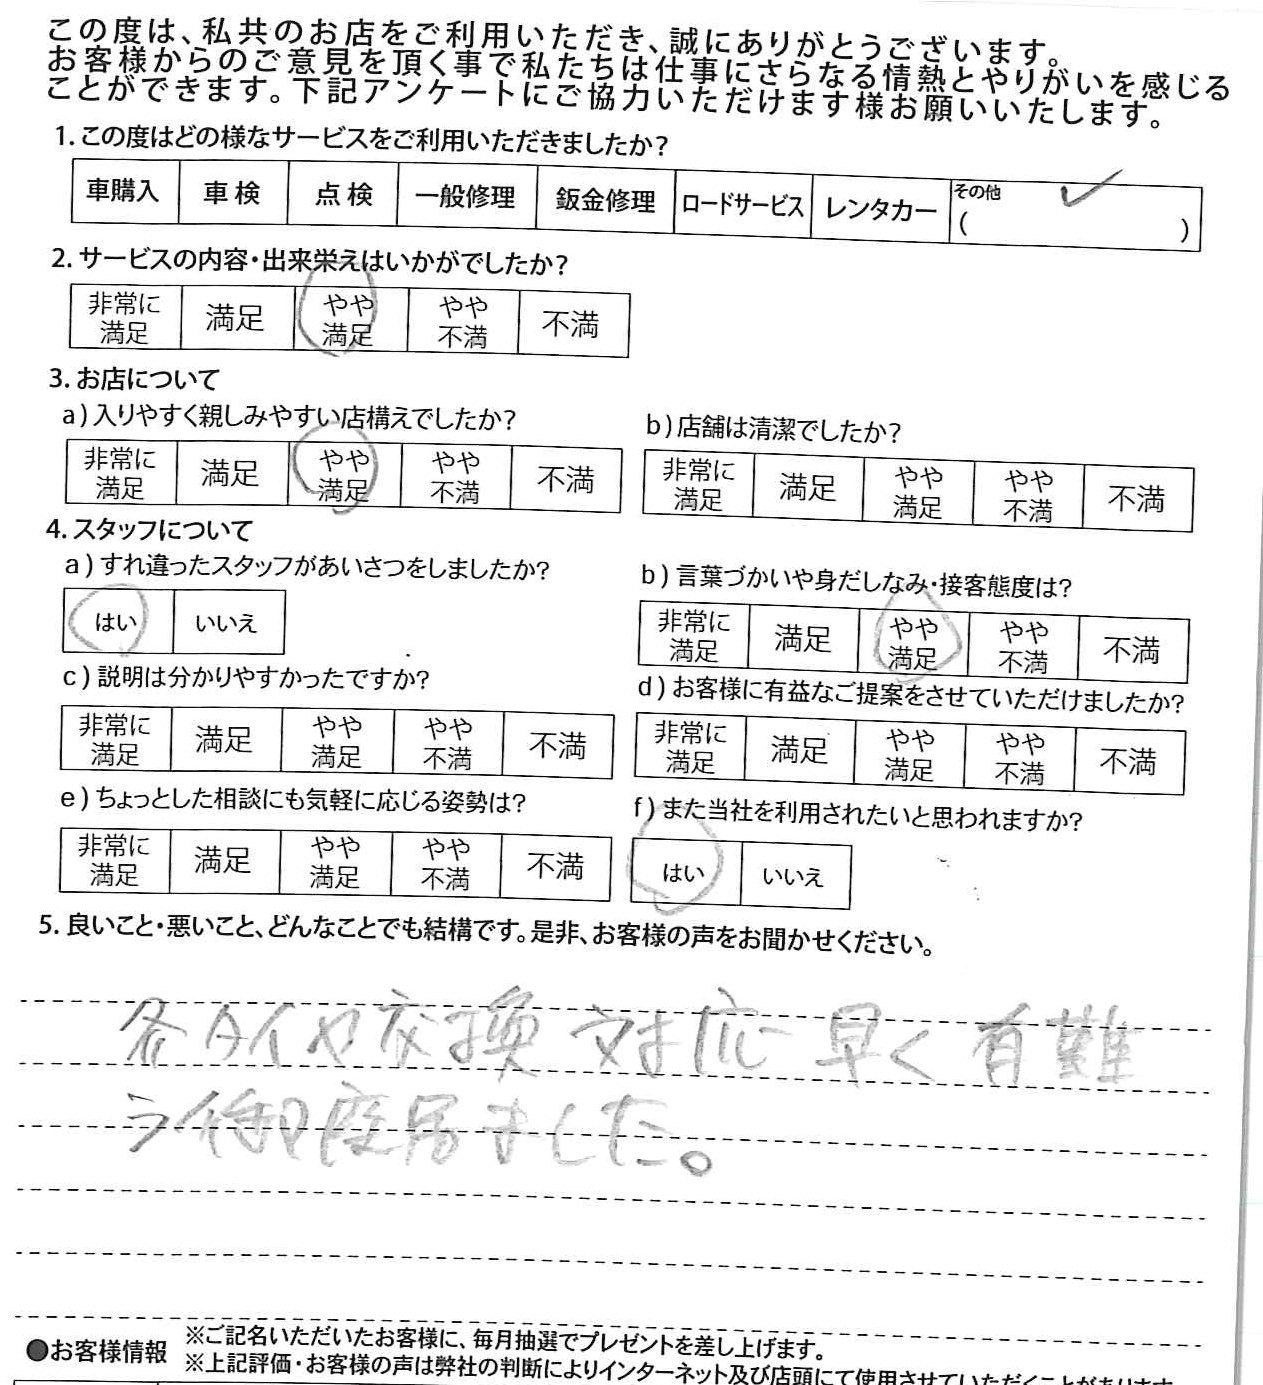 この度は、私共のお店をご利用いただき、誠にありがとうございます。
お客様からのご意見を頂く事で私たちは仕事にさらなる情熱とやりがいを感じる
ことができます。下記アンケートにご協力いただけます様お願いいたします。
1. この度はどの様なサービスをご利用いただきましたか?
車購入 車検 点検 一般修理 鈑金修理 ロードサービス レンタカー その他
( )
2. サービスの内容・出来栄えはいかがでしたか?
非常に満足 満足 やや満足 やや不満 不満
3. お店について
a) 入りやすく親しみやすい店構えでしたか?
非常に満足 満足 やや満足 やや不満 不満
b) 店舗は清潔でしたか?
非常に満足 満足 やや満足 やや不満 不満
4. スタッフについて
a) すれ違ったスタッフがあいさつをしましたか?
はい いいえ
b) 言葉づかいや身だしなみ・接客態度は?
非常に満足 満足 やや満足 やや不満 不満
c) 説明は分かりやすかったですか?
非常に満足 満足 やや満足 やや不満 不満
d) お客様に有益なご提案をさせていただけましたか?
非常に満足 満足 やや満足 やや不満 不満
e) ちょっとした相談にも気軽に応じる姿勢は?
非常に満足 満足 やや満足 やや不満 不満
f) また当社を利用されたいと思われますか?
はい いいえ
5. 良いこと・悪いこと、どんなことでも結構です。是非、お客様の声をお聞かせください。
冬タイヤ交換 対応 早く 有難
う御座居ました。
●お客様情報
※ご記名いただいたお客様に、毎月抽選でプレゼントを差し上げます。
※上記評価・お客様の声は弊社の判断によりインターネット及び店頭にて使用させていただくことがあります